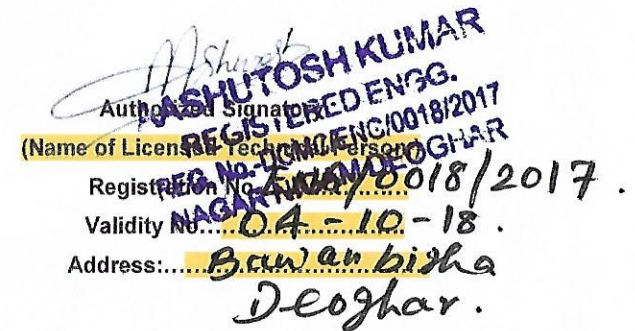 Ashutosh
ASHUTOSH KUMAR
REGISTERED ENGG.
REG. No.-DGMC/ENG/0018/2017
NAGAR NIGAM DEOGHAR
Authorized Signatory
(Name of Licensed Technical Person)
Registration No. ENG/0018/2017.
Validity No.....04-10-18.
Address:.....Bawanbigha
Deoghar.